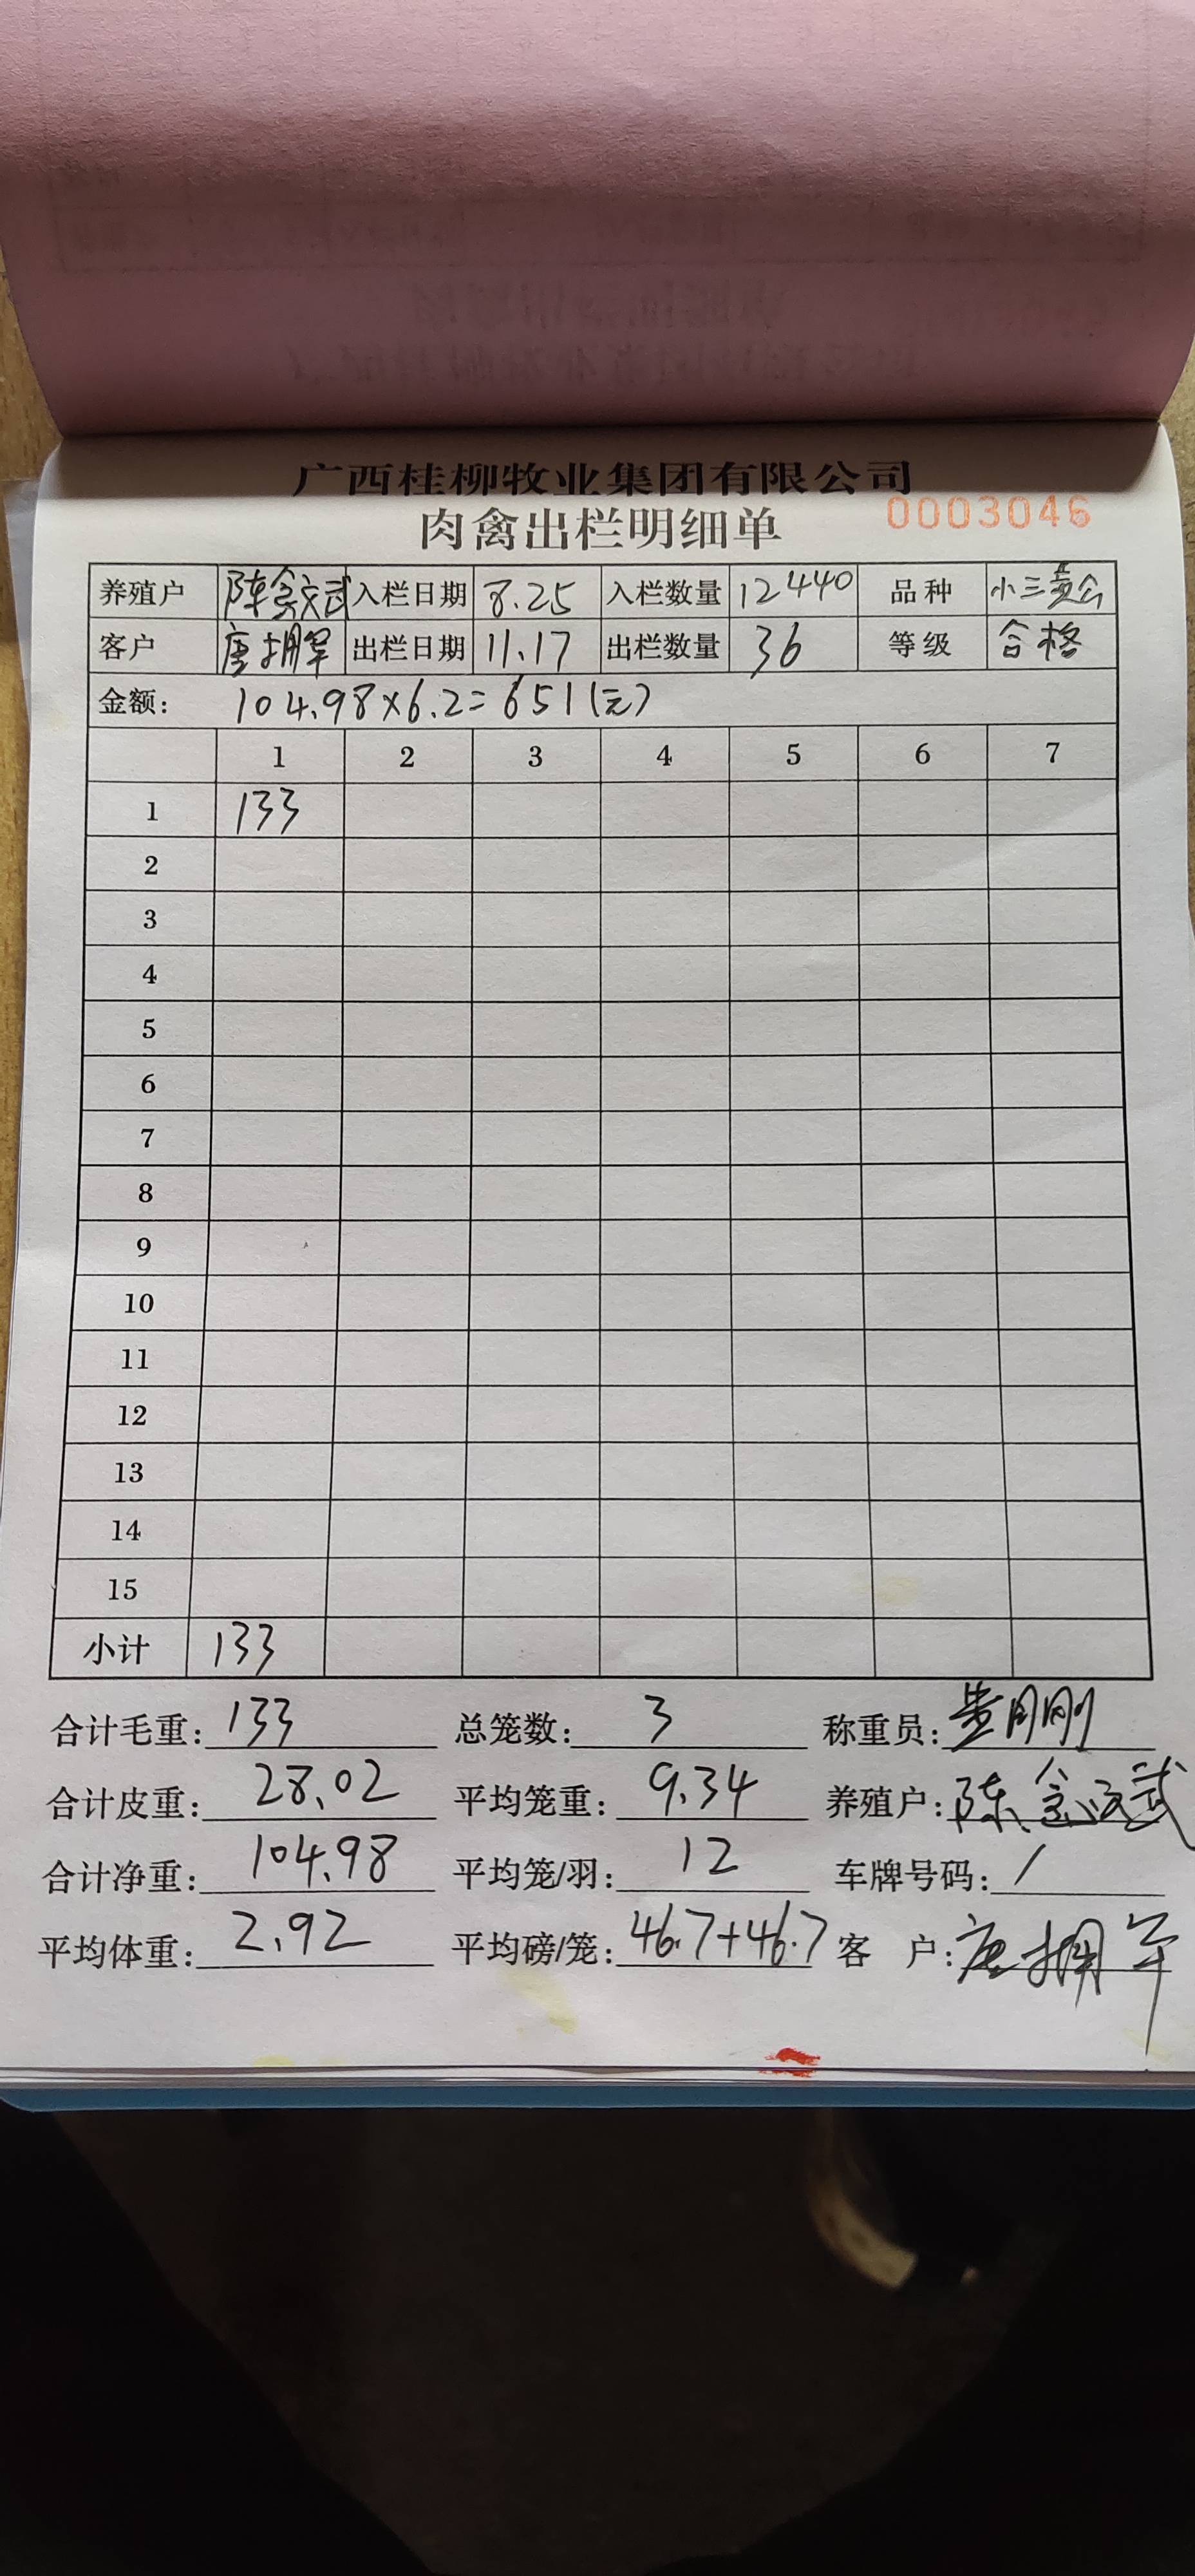 广西桂柳牧业集团有限公司
肉禽出栏明细单 0003046
养殖户 陈食文武 入栏日期 8.25 入栏数量 12440 品种 小三黄公
客户 唐拥军 出栏日期 11.17 出栏数量 36 等级 合格
金额: 104.98×6.2=651(元)
1 2 3 4 5 6 7
1 133
2
3
4
5
6
7
8
9
10
11
12
13
14
15
小计 133
合计毛重: 133 总笼数: 3 称重员: 刚
合计皮重: 28.02 平均笼重: 9.34 养殖户: 陈 武
合计净重: 104.98 平均笼/羽: 12 车牌号码: /
平均体重: 2.92 平均磅/笼: 46.7+46.7 客 户: 唐拥军